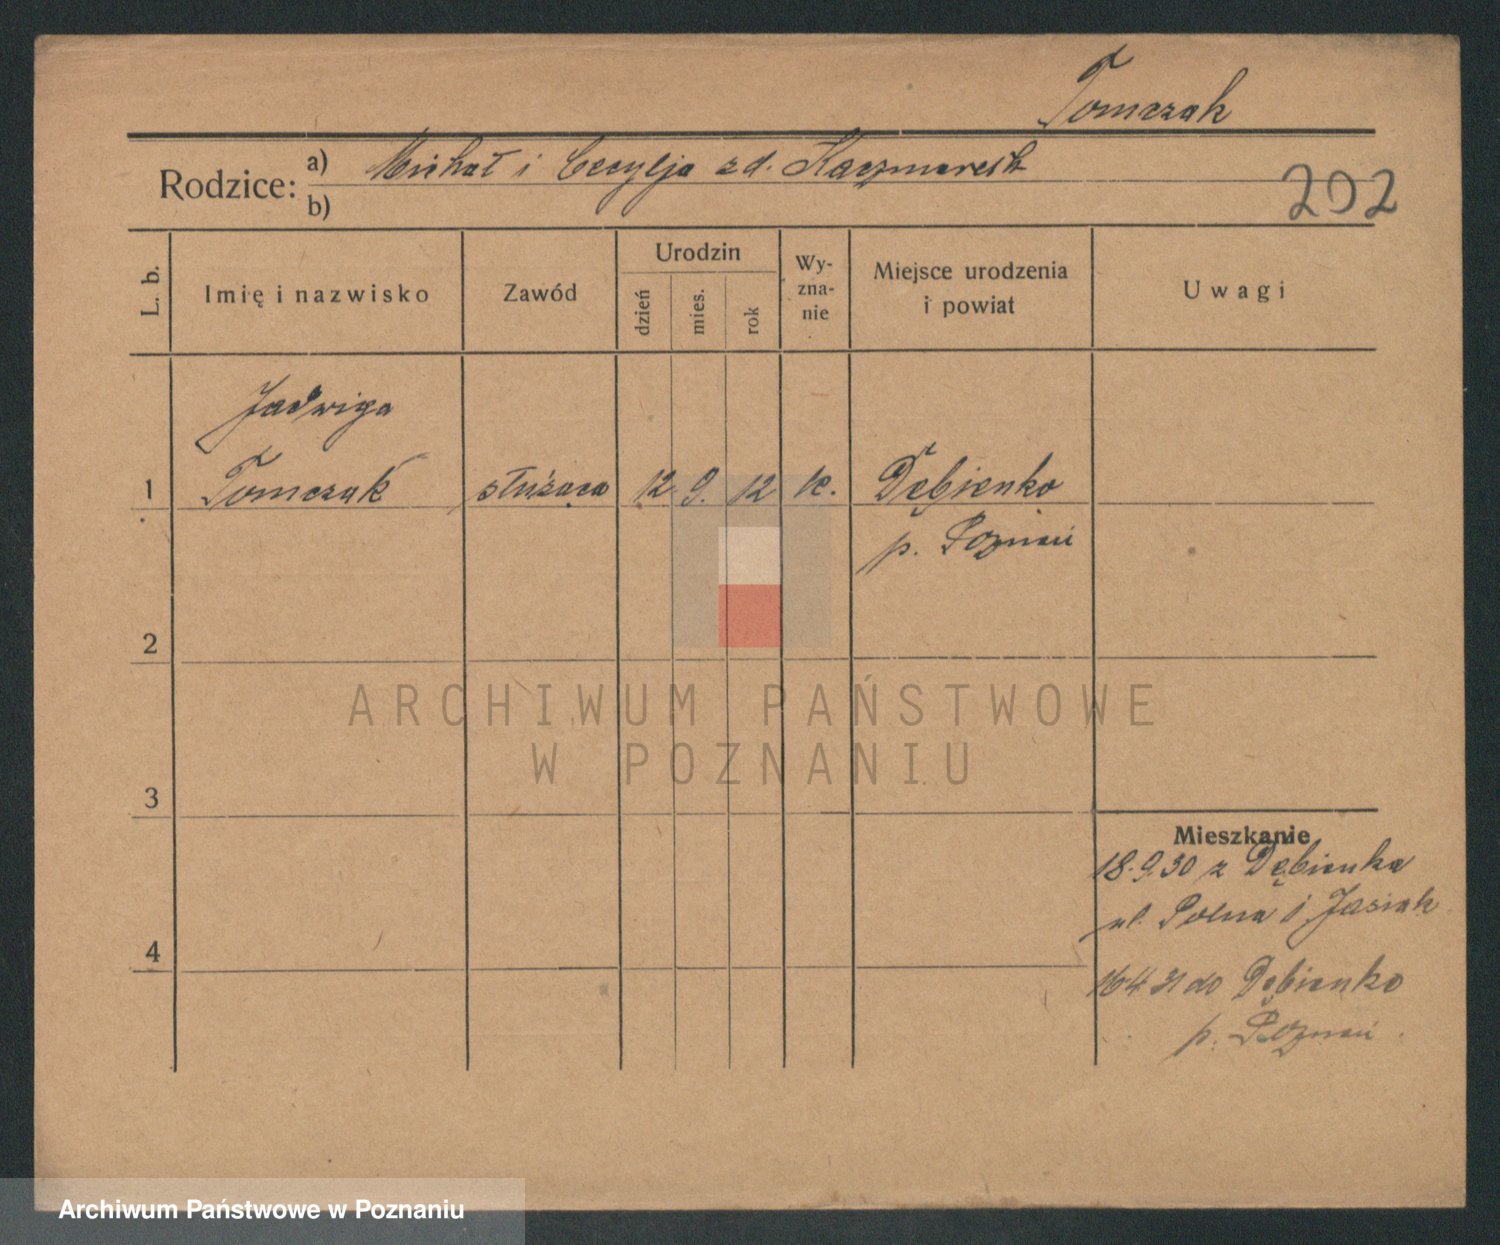 Tomczak
Rodzice: a) Michał i Cecylja zd. Kaczmarek
b)
202
L. b.
Imię i nazwisko
Zawód
Urodzin
dzień
mies.
rok
Wy-
zna-
nie
Miejsce urodzenia
i powiat
Uwagi
Jadwiga
1 Tomczak służąca 12 9. 12 k. Dębienko
p. Poznań
2
3
4
Mieszkanie
18.9.30 z Dębienka
ul. Polna Jasiak
16 4 31 do Dębienko
p. Poznań
ARCHIWUM PAŃSTWOWE
W POZNANIU
Archiwum Państwowe w Poznaniu